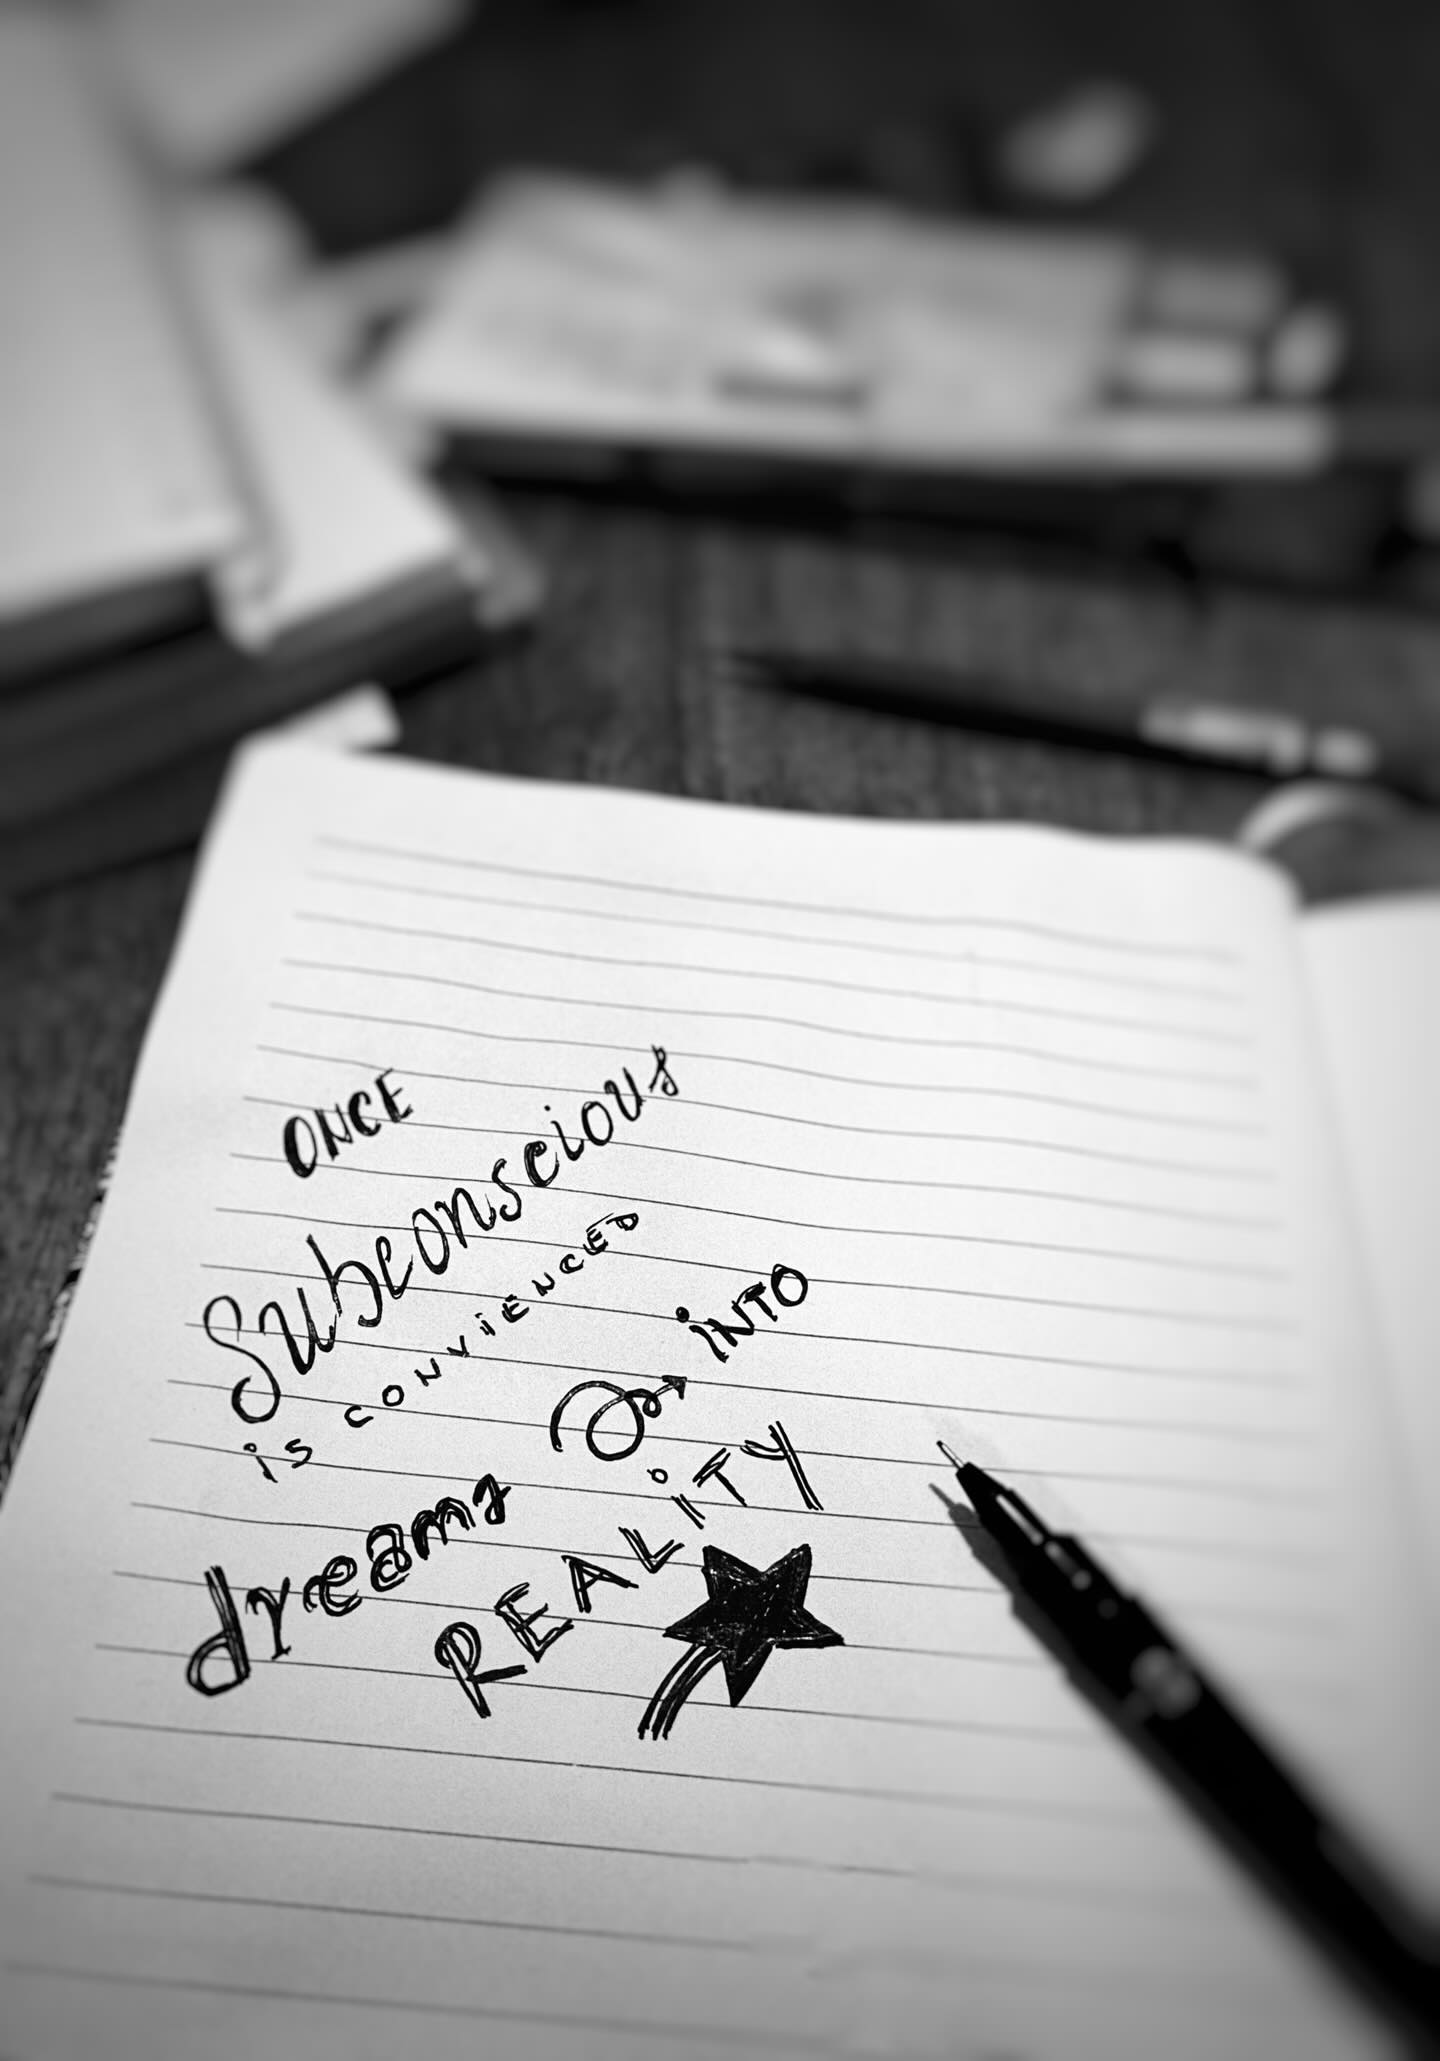 ONCE
Subconscious
is CONViENCED
dreams
iNTO
REALiTY